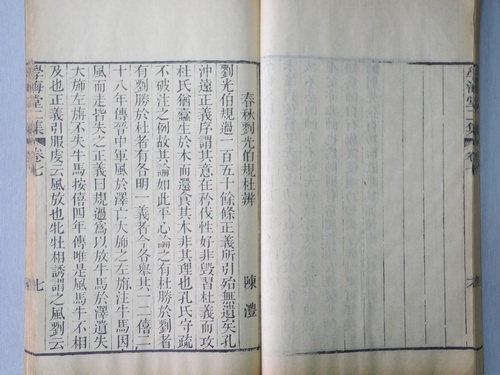 學海堂二集
卷七
春秋劉光伯規杜辨
陳澧
劉光伯規過一百五十餘條正義所引殆無遺矣孔
沖遠正義序謂其意在矜伐性好非毀習杜義而攻
杜氏猶蠹生於木而還食其木非其理也孔氏守疏
不破注之例故其論如此平心論之有杜勝於劉者
有劉勝於杜者有各明一義者今各舉其一二僖二
十八年傳晉中軍風於澤亡大旆之左旃注牛馬因
風而走皆失之正義曰規過爲以放牛馬於澤遺失
大旆左旃不失牛馬按僖四年傳唯是風馬牛不相
及也正義引服虔云風放也牝牡相誘謂之風劉云
學海堂二集
卷七
七